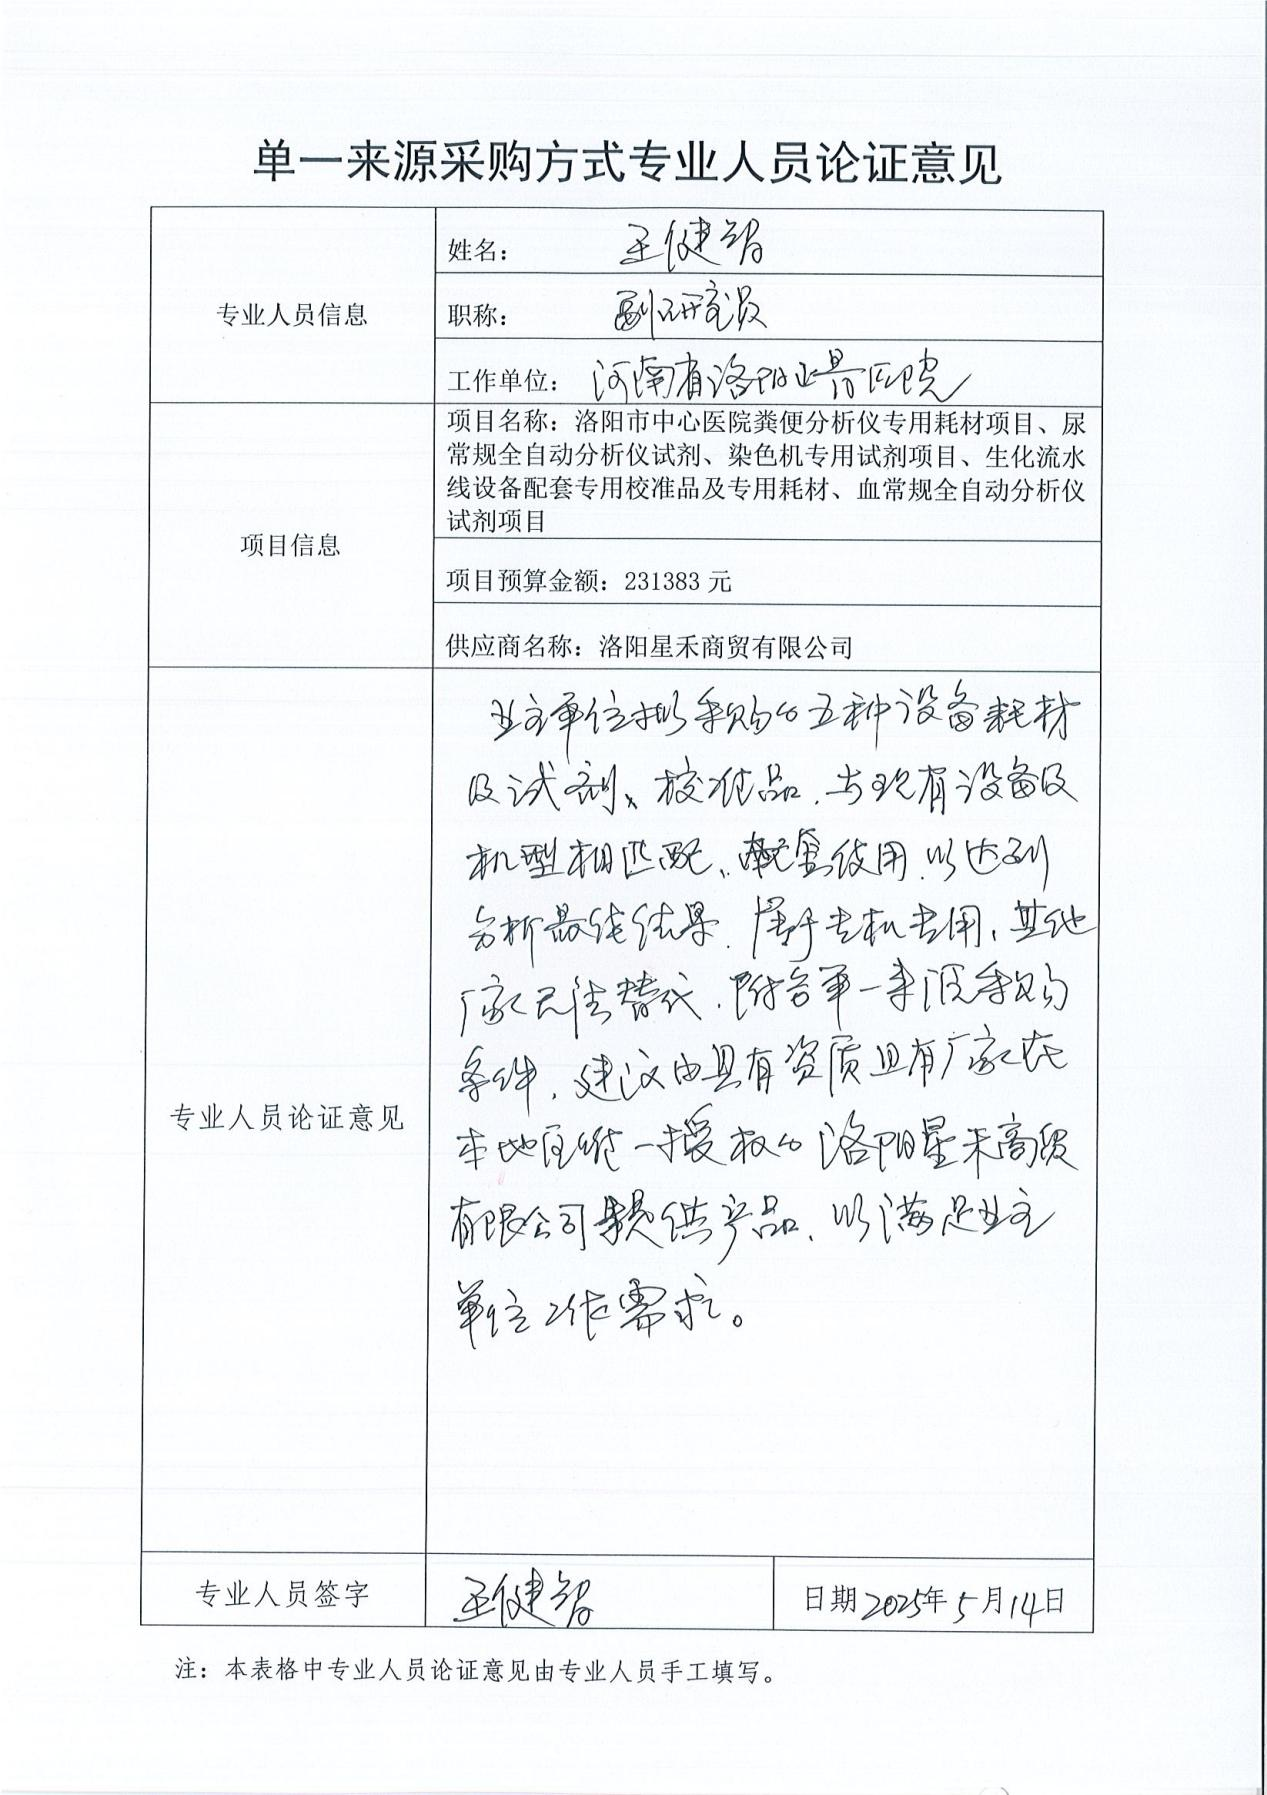 单一来源采购方式专业人员论证意见
专业人员信息
姓名： 王健智
职称： 副研究员
工作单位： 河南省洛阳正骨医院
项目信息
项目名称：洛阳市中心医院粪便分析仪专用耗材项目、尿
常规全自动分析仪试剂、染色机专用试剂项目、生化流水
线设备配套专用校准品及专用耗材、血常规全自动分析仪
试剂项目
项目预算金额：231383 元
供应商名称：洛阳星禾商贸有限公司
专业人员论证意见
业主单位拟采购的五种设备耗材
及试剂、校准品，与现有设备及
机型相匹配，配套使用，以达到
分析最佳结果，属于专机专用，其他
厂家无法替代，附合单一来源采购
条件，建议由具有资质且有厂家在
本地区唯一授权的洛阳星禾商贸
有限公司提供产品，以满足业主
单位工作需求。
专业人员签字
王健智
日期 2025年 5月 14日
注：本表格中专业人员论证意见由专业人员手工填写。